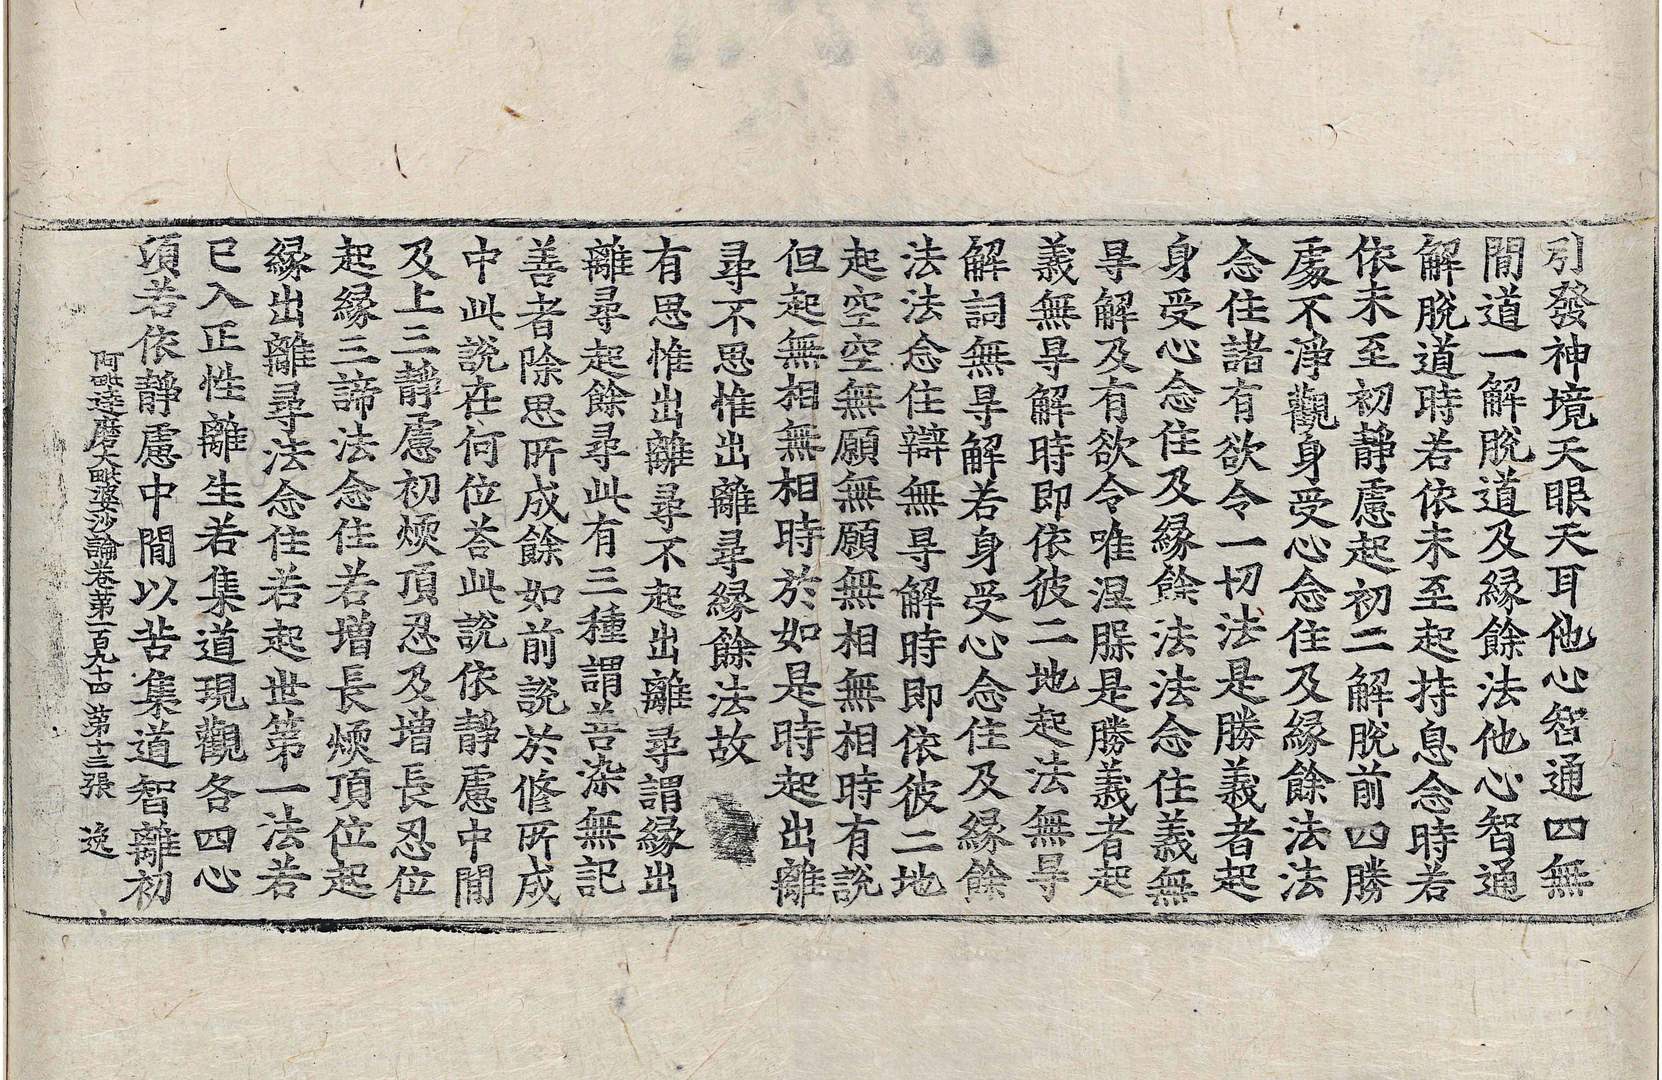 引發神境天眼天耳他心智通四無
間道一解脫道及緣餘法他心智通
解脫道時若依未至起持息念時若
依未至初靜慮起初二解脫前四勝
處不淨觀身受心念住及緣餘法法
念住諸有欲令一切法是勝義者起
身受心念住及緣餘法法念住義無
㝵解及有欲令唯涅槃是勝義者起
義無㝵解時即依彼二地起法無㝵
解詞無㝵解若身受心念住及緣餘
法法念住辯無㝵解時即依彼二地
起空空無願無願無相無相時有說
但起無相無相時於如是時起出離
尋不思惟出離尋緣餘法故
有思惟出離尋不起出離尋謂緣出
離尋起餘尋此有三種謂善染無記
善者除思所成餘如前說於修所成
中此說在何位荅此說依靜慮中間
及上三靜慮初煗頂忍及增長忍位
起緣三諦法念住若增長煗頂位起
緣出離尋法念住若起世第一法若
已入正性離生若集道現觀各四心
頃若依靜慮中間以苦集道智離初
阿毗達磨大毗婆沙論卷第一百九十四 第十三張 逸